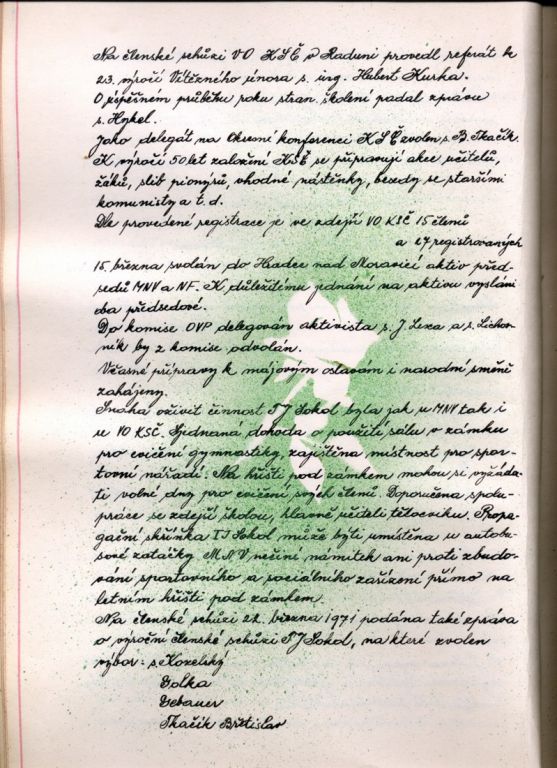 Na členské schůzi VO KSČ v Raduni provedl referát k
23. výročí Vítězného února s. ing. Hubert Kurka.
O úspěšném průběhu roku stran. školení podal zprávu
s. Hykel.
Jako delegát na Okresní konferenci KSČ zvolen s. B. Tkačík.
K výročí 50 let založení KSČ se připravují akce učitelů,
žáků, slib pionýrů, vhodné nástěnky, besedy se staršími
komunisty a t. d.
Dle provedené registrace je ve zdejší VO KSČ 15 členů
a 27 registrovaných
15. března svolán do Hradce nad Moravicí aktiv před-
sedů MNV a NF. K důležitému jednání na aktivu vysláni
oba předsedové.
Do komise OVP delegován aktivista s. J. Lexa a s. Lichov-
ník by z komise odvolán.
Včasné přípravy k májovým oslavám i narodní směně
zahájeny.
Snaha oživit činnost TJ Sokol byla jak u MNV tak i
u VO KSČ. Sjednaná dohoda o použití sálu v zámku
pro cvičení gymnastiky, zajištěna místnost pro spor-
tovní nářadí. Na hřišti pod zámkem mohou si vyžáda-
ti volné dny pro cvičení svých členů. Doporučena spolu-
práce se zdejší školou, hlavně učiteli tělocviku. Propa-
gační skříňka TJ Sokol může býti umístěna u autobu-
sové zatáčky. MNV nečiní námitek ani proti zbudo-
vání sportovního a sociálního zařízení přímo na
letním hřišti pod zámkem.
Na členské schůzi 22. března 1971 podána také zpráva
o výroční členské schůzi TJ Sokol, na které zvolen
výbor: s. Kozelský
Golka
Gebauer
Tkačík Břetislav